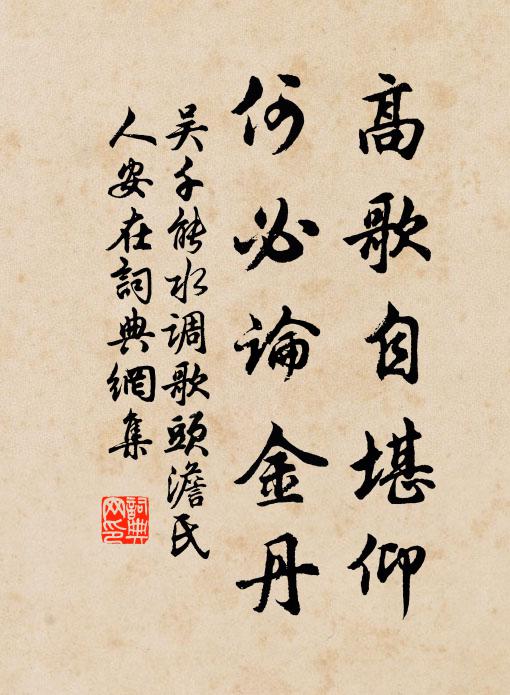 高歌自堪仰
何必論金丹
吴千能水調歌頭澹氏
人安在詞典網集
詞典
网印